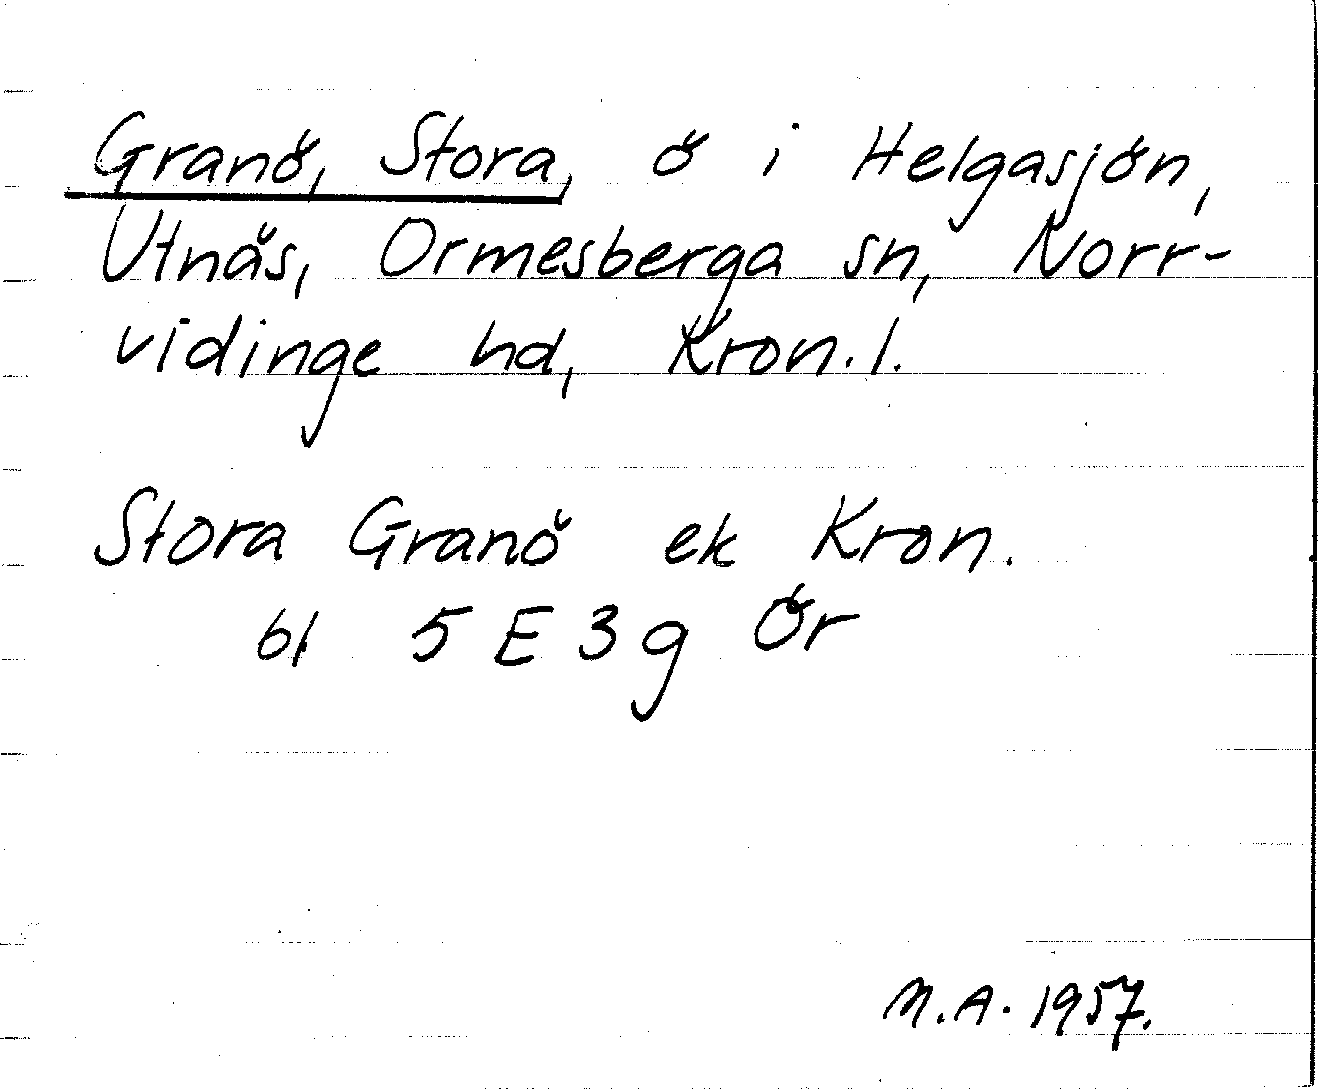 Granö, Stora, ö i Helgasjön,
Utnäs, Ormesberga sn, Norr-
vidinge hd, Kron. l.
Stora Granö ek Kron.
bl 5 E 3 g Ör
M.A. 1957.